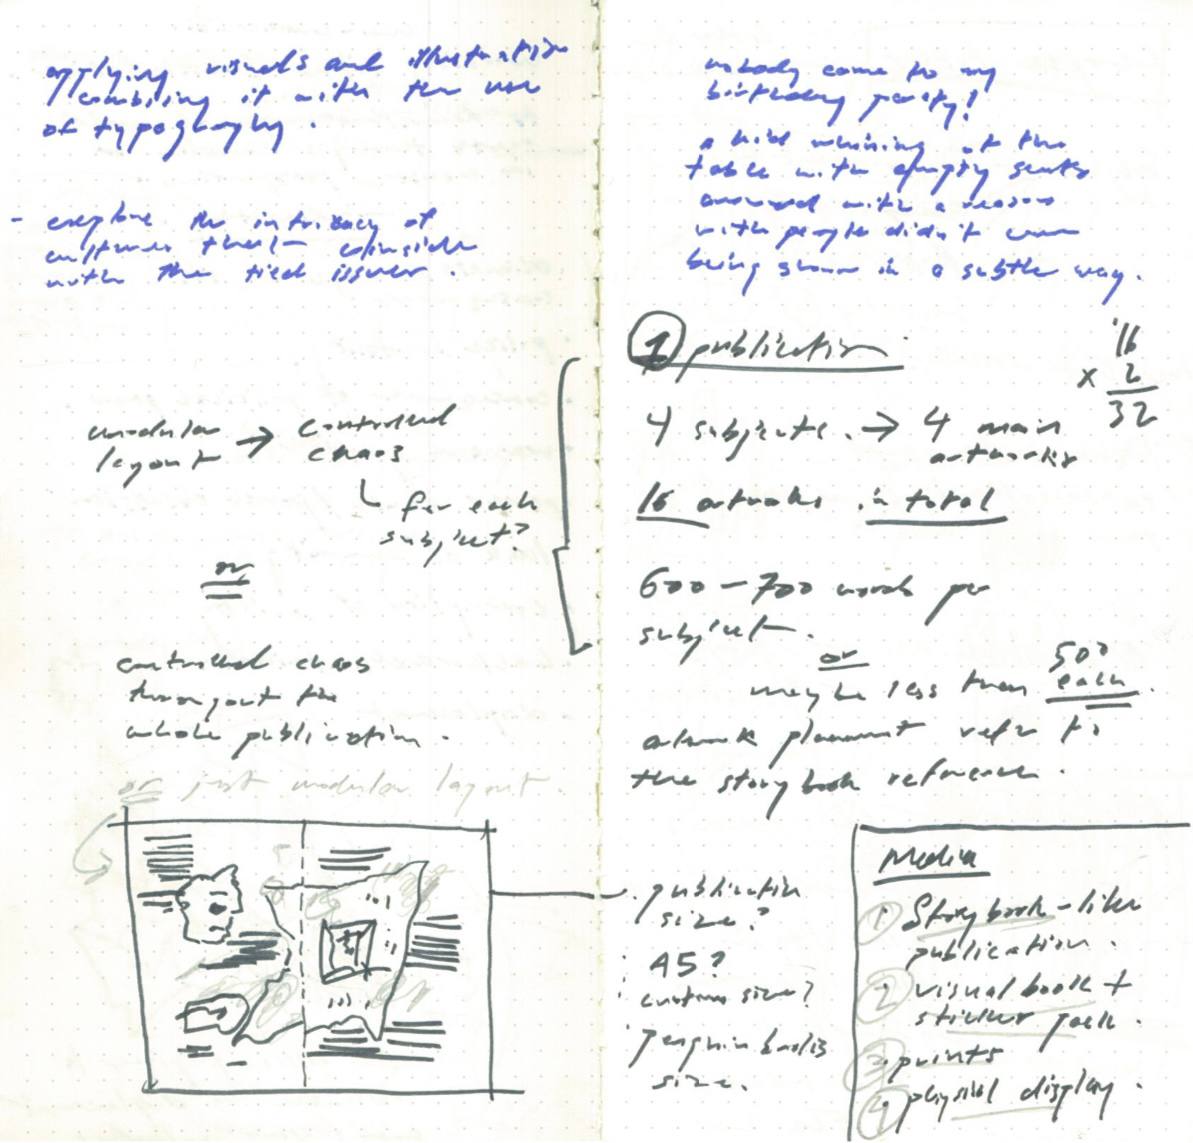 applying visuals and illustration
combing it with the use
of typography.
- explore the intricacy of
cultures that coinside
with the tied issues.
modular → controlled
layout chaos
for each
subject?
or
controlled chaos
througout the
whole publication.
or just modular layout.
nobody come to my
birthday party!
a kid whining at the
table with empty seats
around with a reason
with people didn't come
being shown in a subtle way.
1 publication
16
x 2
32
4 subjects. → 4 main
artworks
16 artworks in total
600 - 700 words per
subject.
or
maybe less than 500
each.
artwork placement refer to
the storybook reference.
publication
size?
A5?
custom size?
penguin books
size.
Media
1 Storybook-like
publication.
2 visual book +
sticker pack.
3 prints
4 physical display.